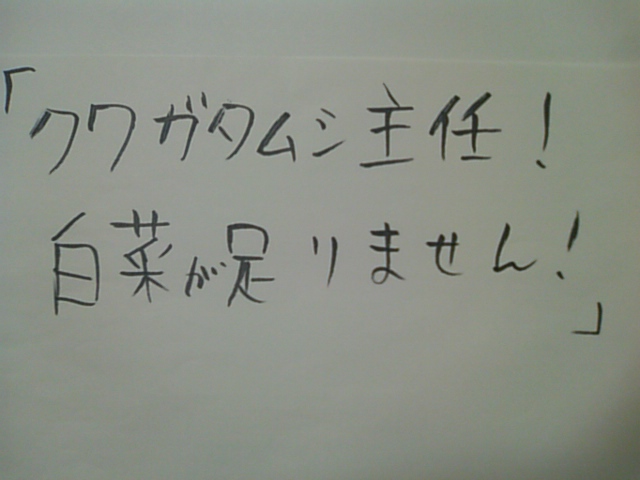 「クワガタムシ主任！
白菜が足りません！」